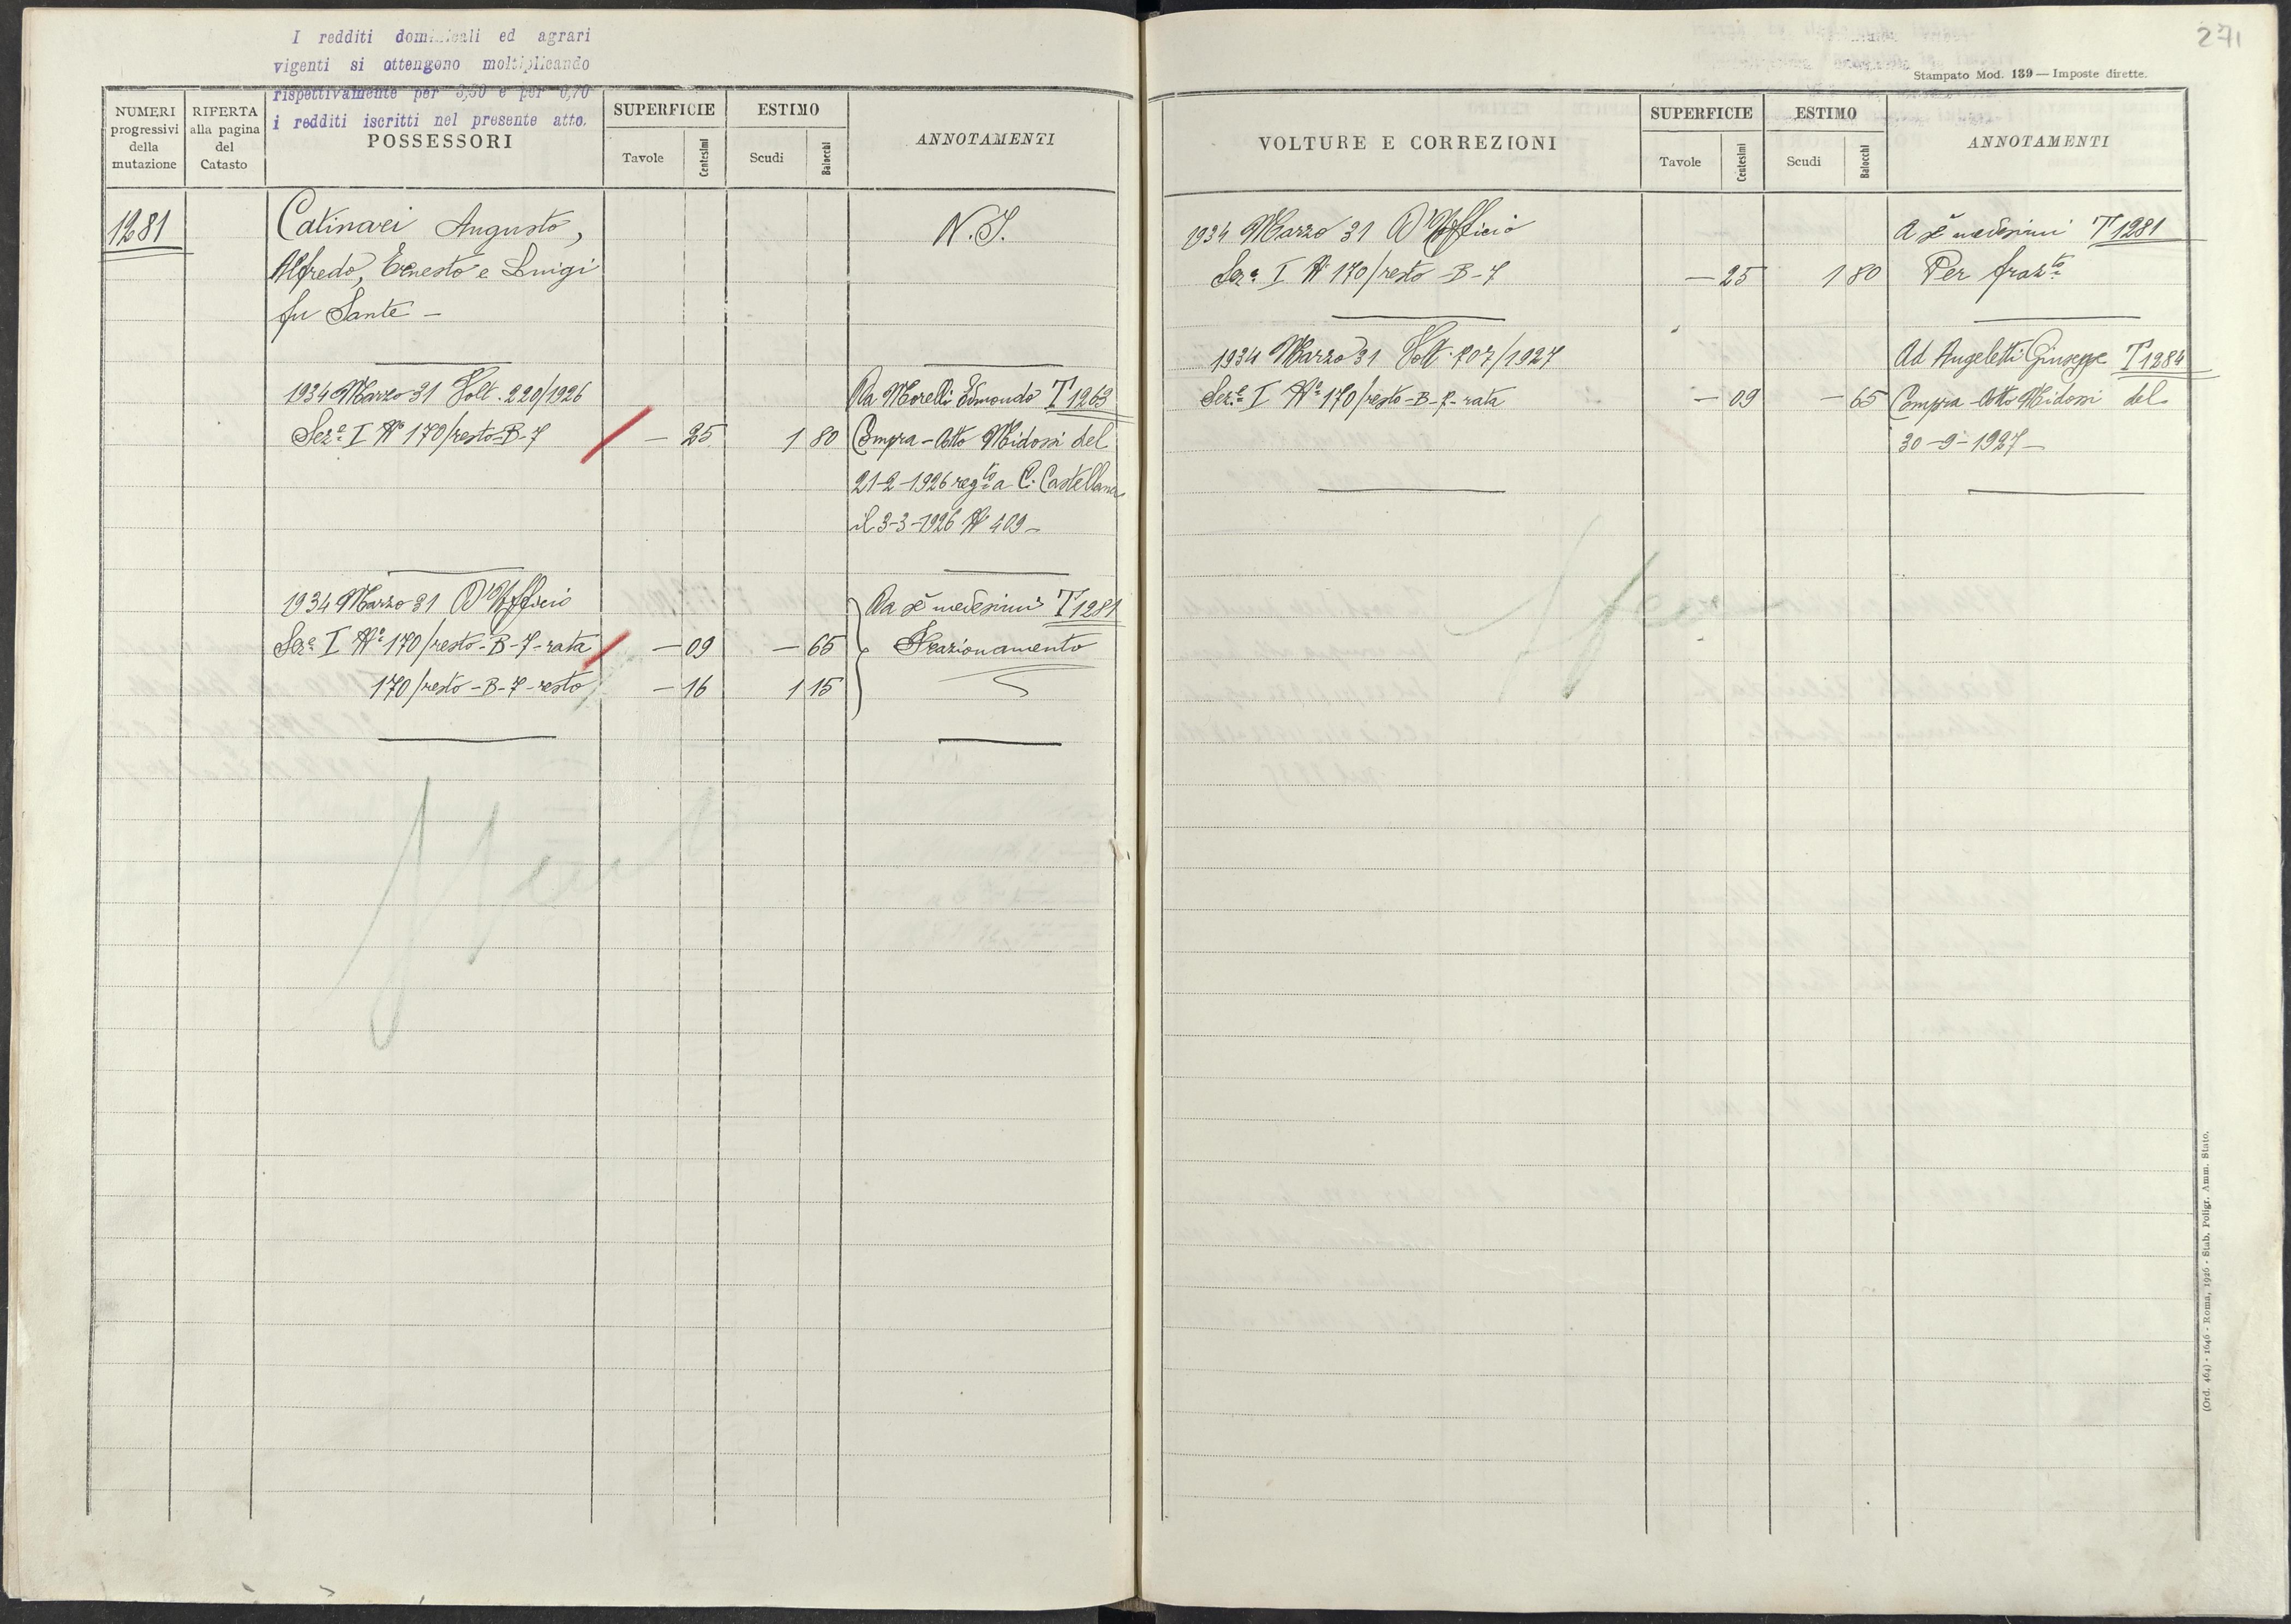 I redditi dominicali ed agrari
vigenti si ottengono moltiplicando
rispettivamente per 3,30 e per 0,70
i redditi iscritti nel presente atto.
NUMERI progressivi della mutazione
RIFERTA alla pagina del Catasto
POSSESSORI
SUPERFICIE
Tavole Centesimi
ESTIMO
Scudi Baiocchi
ANNOTAMENTI
1281 Catinari Augusto, N.I.
Alfredo, Ernesto e Luigi
fu Sante –
1934 Marzo 31 Volt. 220/1926 Da Morelli Edmondo T 1263
Sez.e I No 170/resto-B-7 — 25 1 80 Compra – Atto Midossi del
21-2-1926 reg.to a C. Castellana
il 3-3-1926 No 409 –
1934 Marzo 31 D'Ufficio Da sè medesimi T 1281
Sez.e I No 170/resto-B-7-rata — 09 — 65 Frazionamento
170/resto-B-7-resto — 16 1 15
271
Stampato Mod. 139 — Imposte dirette.
VOLTURE E CORREZIONI
SUPERFICIE
Tavole Centesimi
ESTIMO
Scudi Baiocchi
ANNOTAMENTI
1934 Marzo 31 D'Ufficio A sè medesimi T 1281
Sez.e I No 170/resto-B-7 — 25 1 80 Per fraz.to
1934 Marzo 31 Volt. 707/1927 Ad Angeletti Giuseppe T 1284
Sez.e I No 170/resto-B-7-rata — 09 — 65 Compra – Atto Midossi del
30-9-1927 –
(Ord. 464) - 1646 - Roma, 1926 - Stab. Poligr. Amm. Stato.